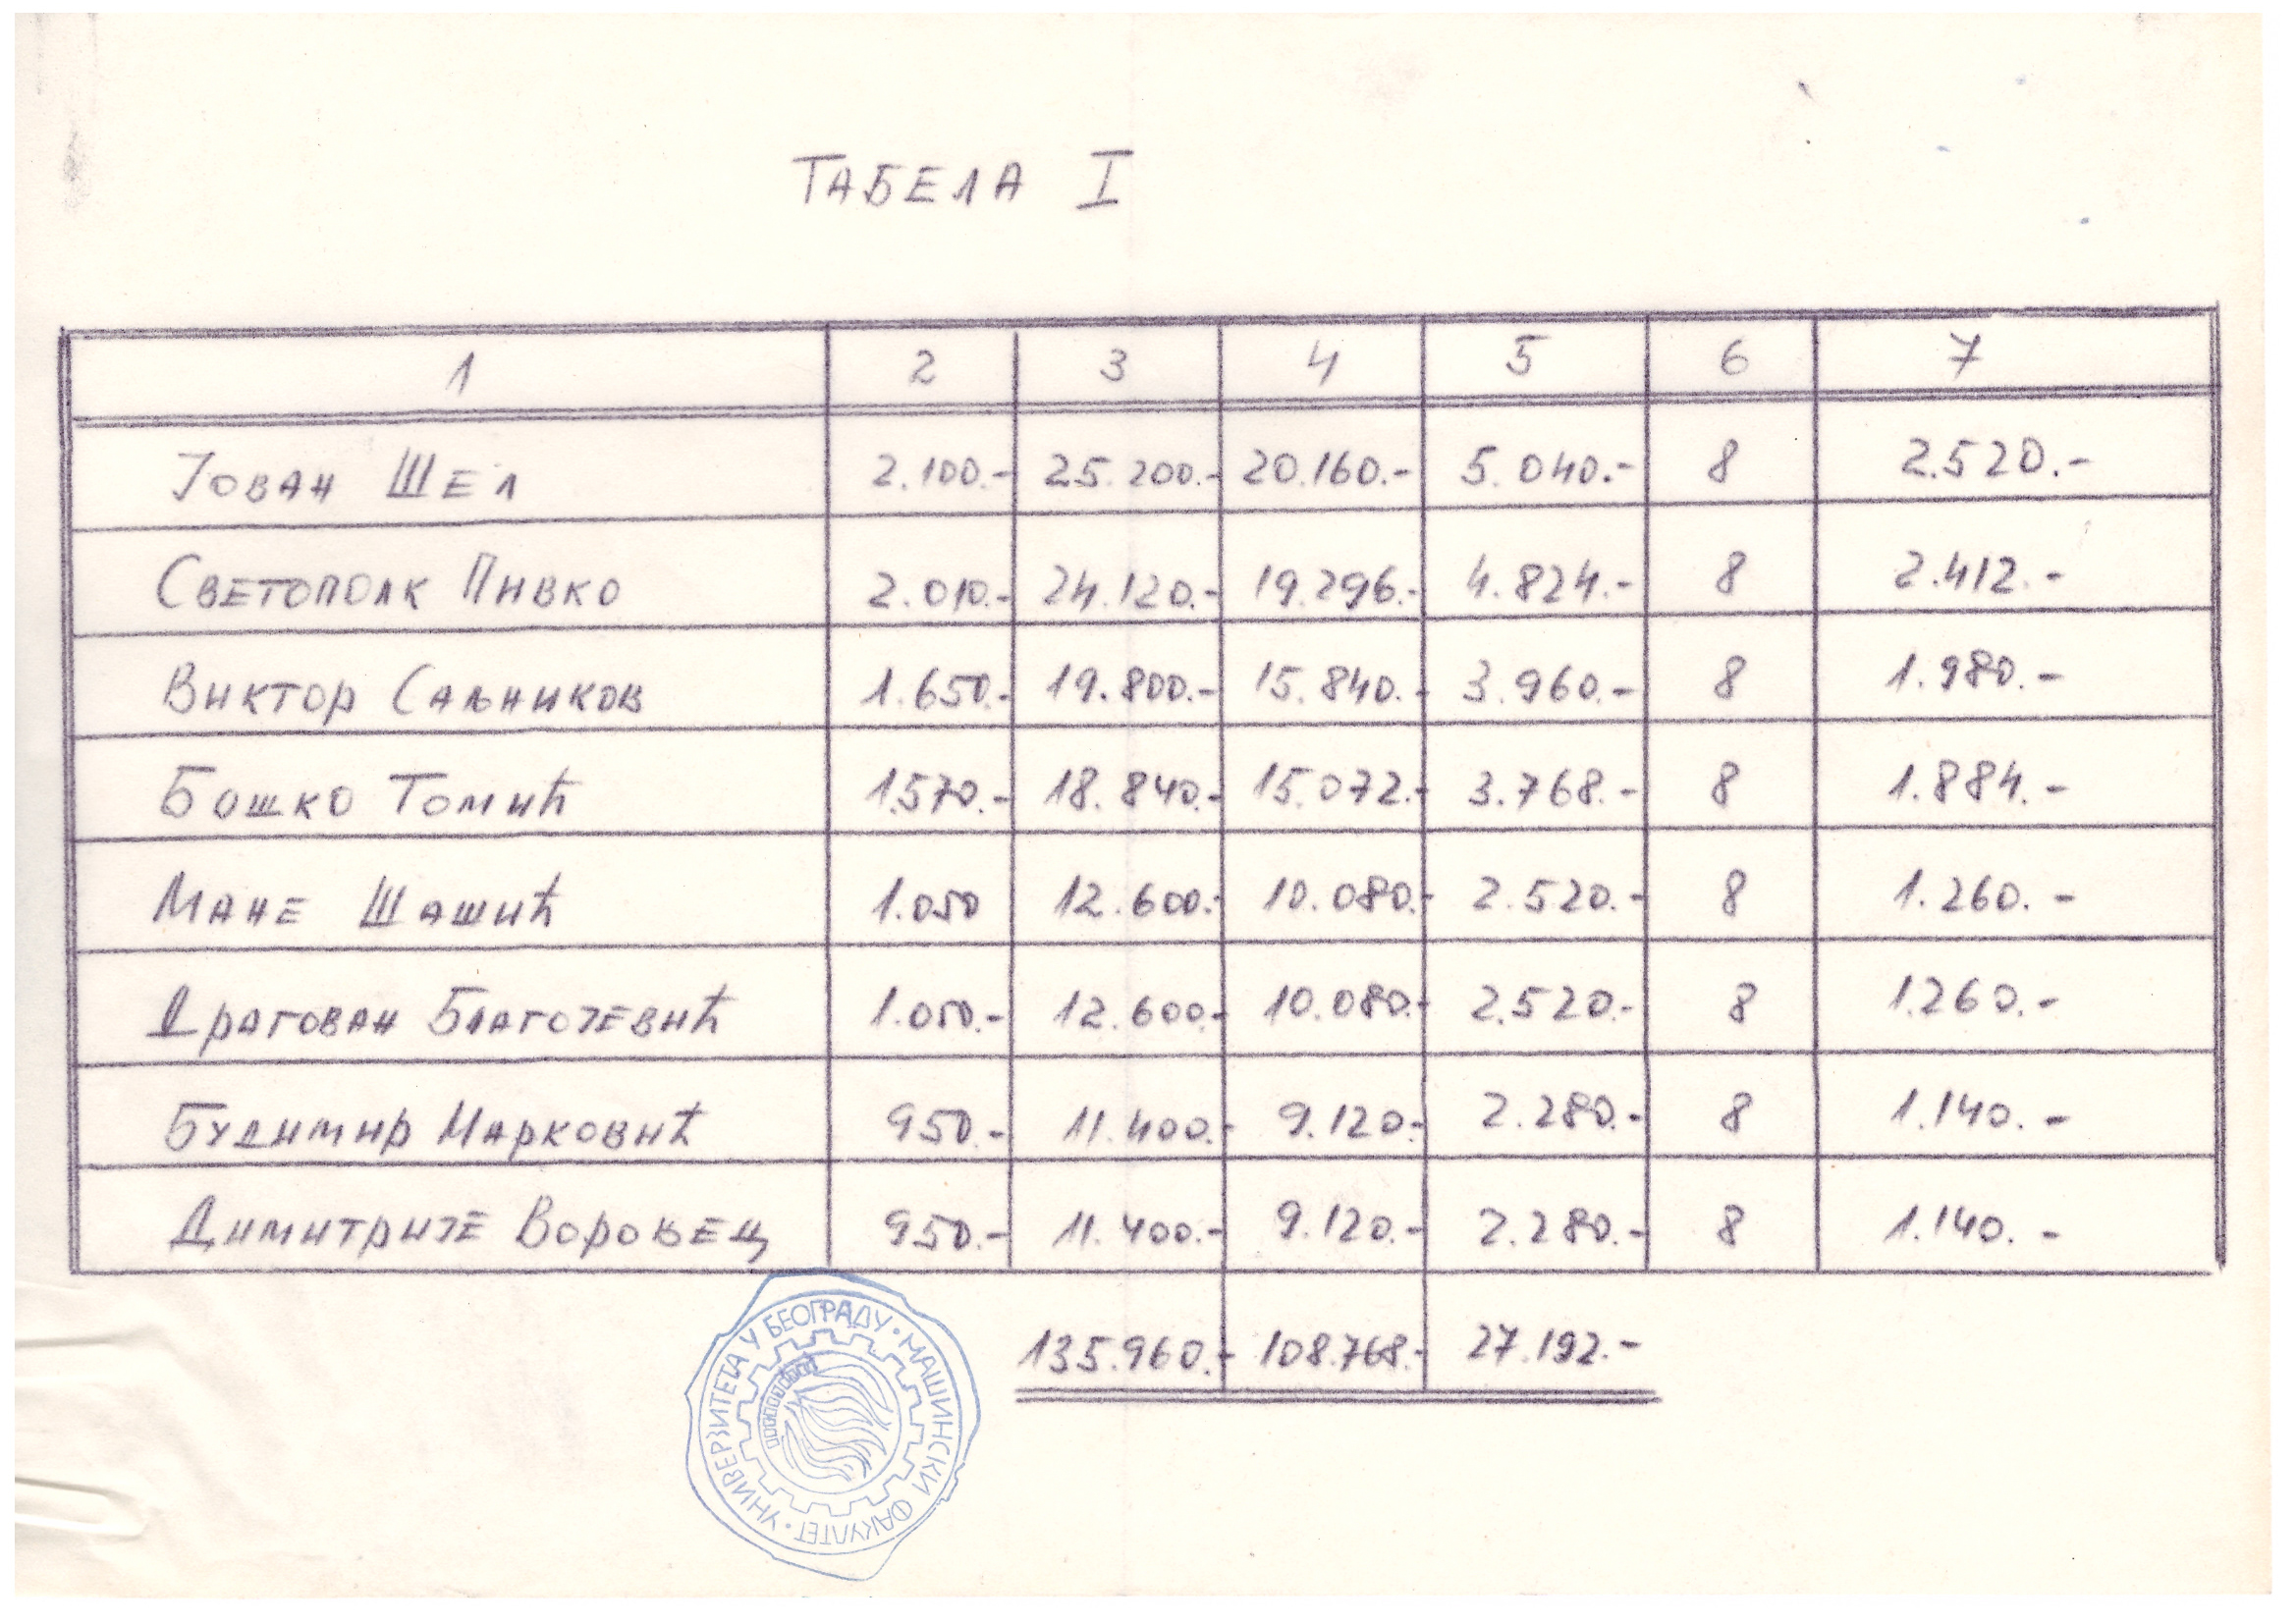 ТАБЕЛА I
1 2 3 4 5 6 7
Јован Шел 2.100.- 25.200.- 20.160.- 5.040.- 8 2.520.-
Светополк Пивко 2.010.- 24.120.- 19.296.- 4.824.- 8 2.412.-
Виктор Саљников 1.650.- 19.800.- 15.840.- 3.960.- 8 1.980.-
Бошко Томић 1.570.- 18.840.- 15.072.- 3.768.- 8 1.884.-
Мане Шашић 1.050 12.600.- 10.080.- 2.520.- 8 1.260.-
Драгован Благојевић 1.050.- 12.600.- 10.080.- 2.520.- 8 1.260.-
Будимир Марковић 950.- 11.400.- 9.120.- 2.280.- 8 1.140.-
Димитрије Воробец 950.- 11.400.- 9.120.- 2.280.- 8 1.140.-
135.960.- 108.768.- 27.192.-
УНИВЕРЗИТЕТА У БЕОГРАДУ · МАШИНСКИ ФАКУЛТЕТ ·